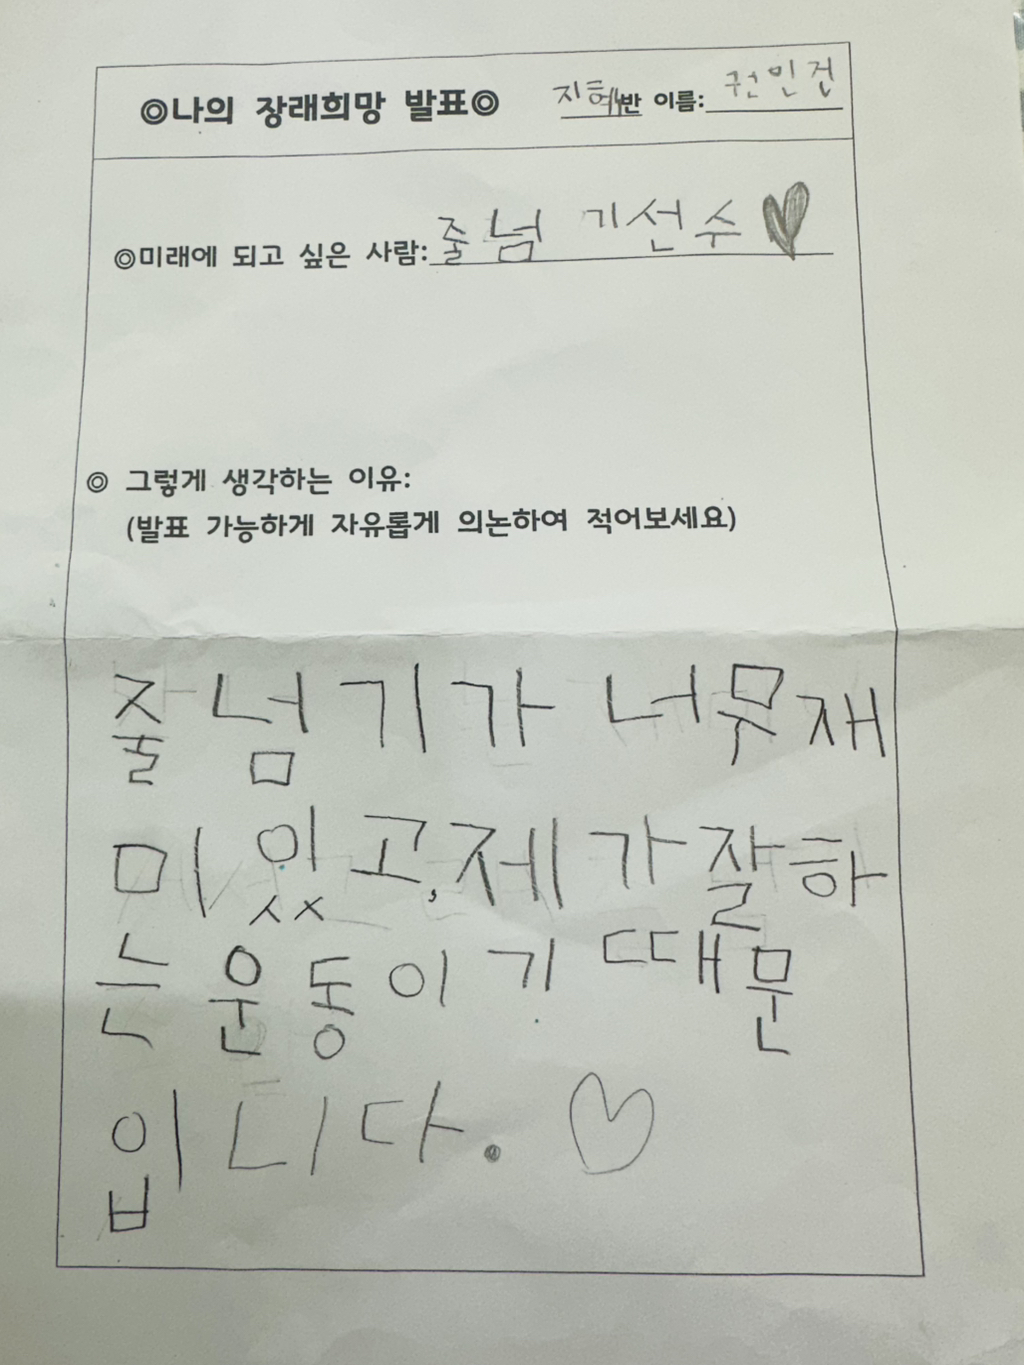 ◎나의 장래희망 발표◎ 지혜반 이름: 권민건
◎미래에 되고 싶은 사람: 줄넘 기선수
◎ 그렇게 생각하는 이유:
(발표 가능하게 자유롭게 의논하여 적어보세요)
줄넘기가 너무재
미있고, 제가잘하
는운동이기때문
입니다.